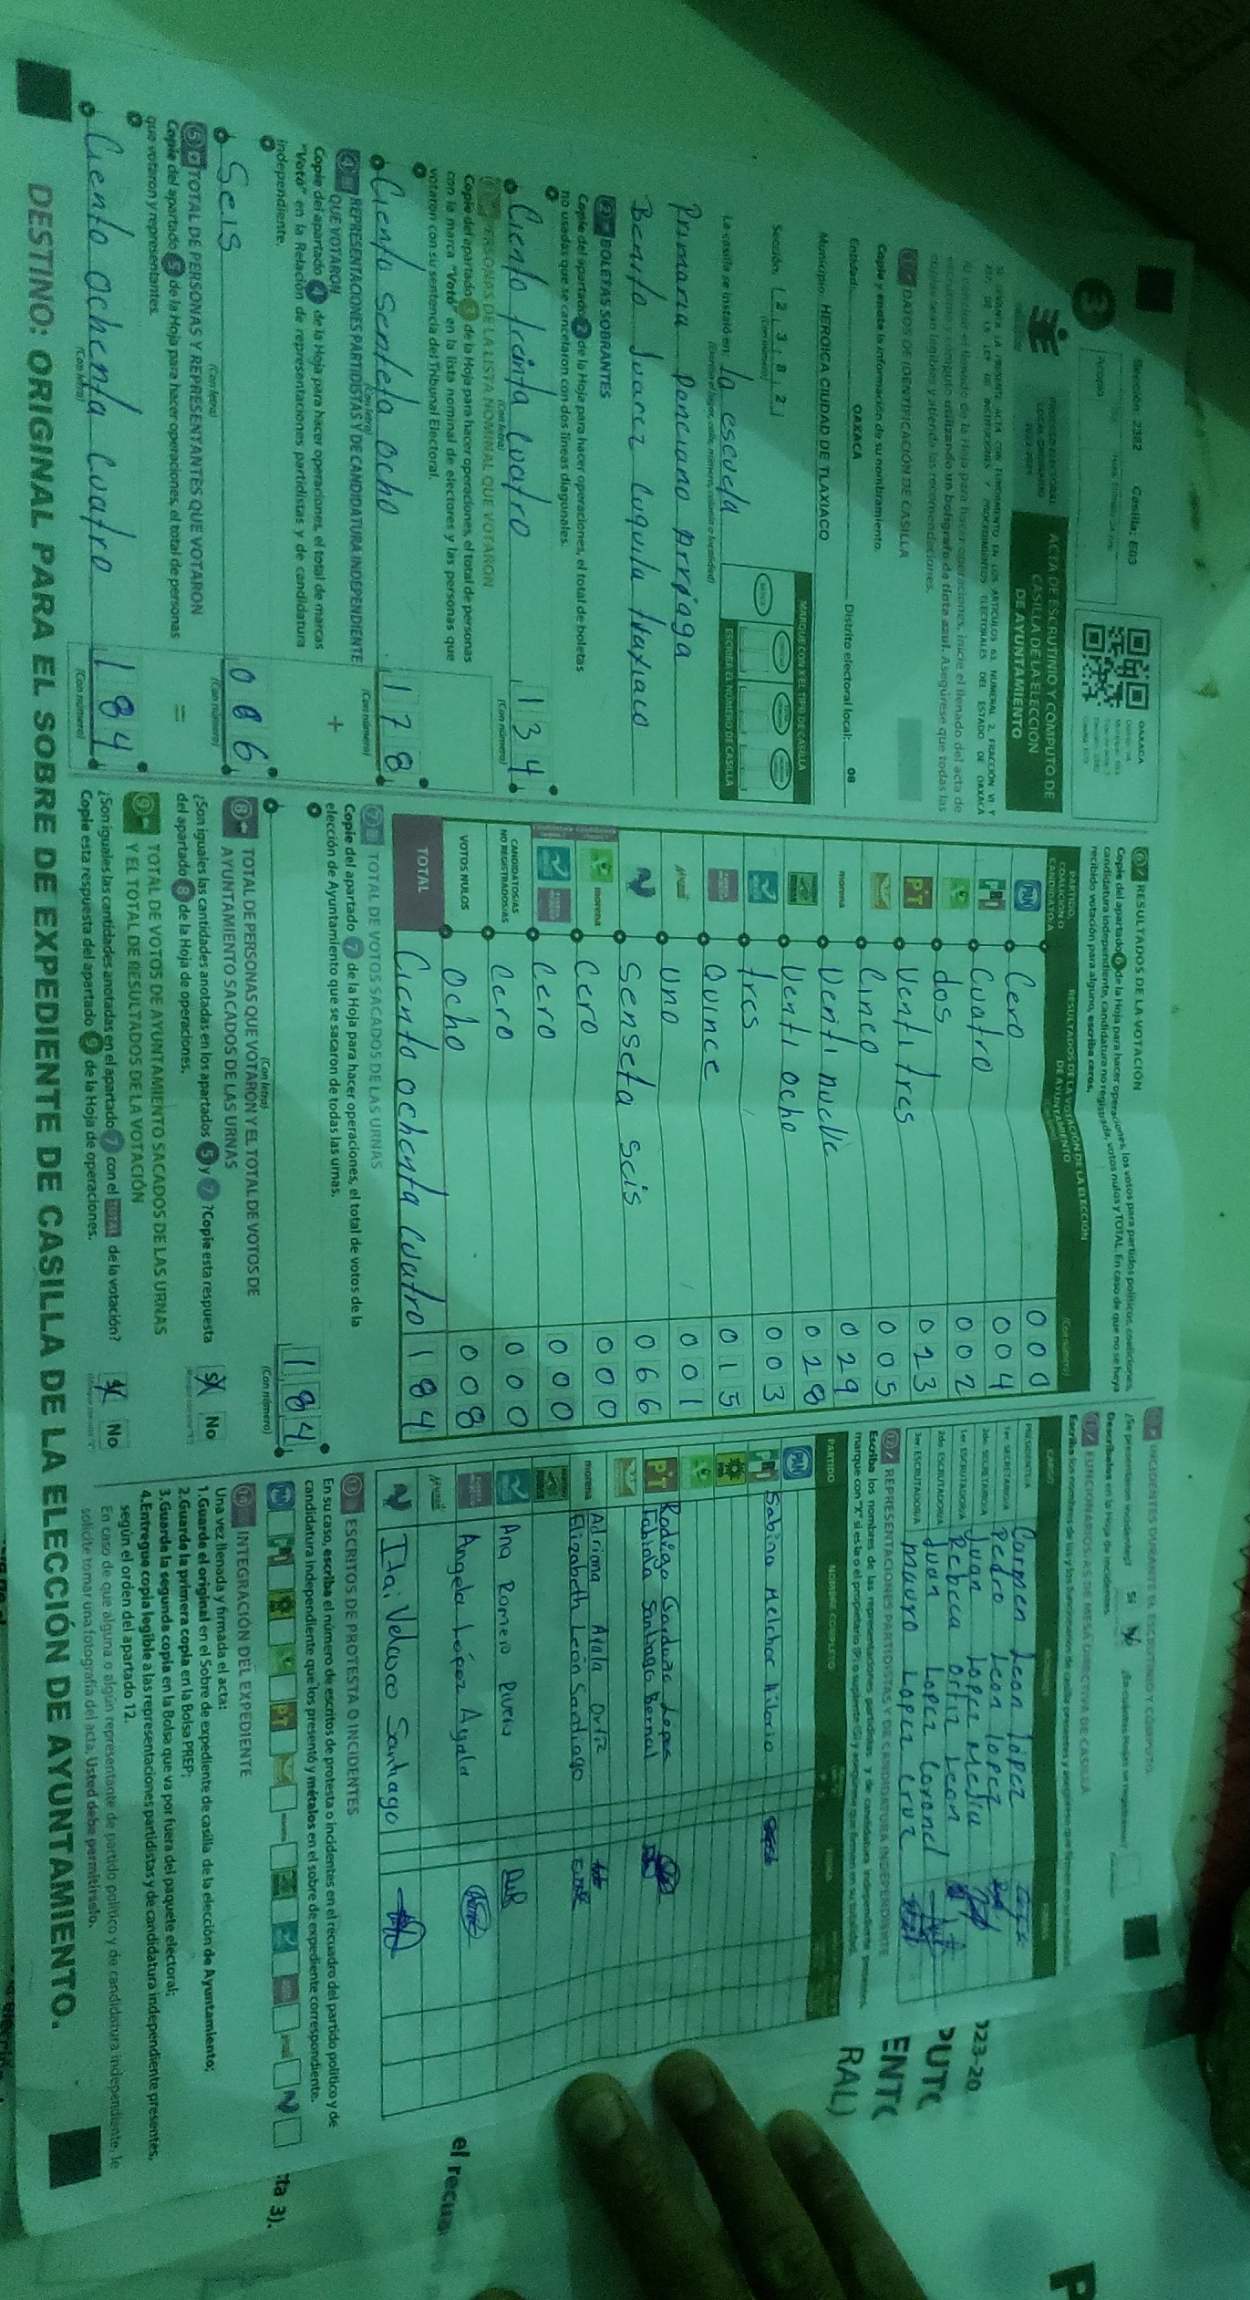 Sección: 2382 Casilla: E03
OAXACA
3
PROCESO ELECTORAL
LOCAL ORDINARIO
2023-2024
ACTA DE ESCRUTINIO Y CÓMPUTO DE
CASILLA DE LA ELECCIÓN
DE AYUNTAMIENTO
DATOS DE IDENTIFICACIÓN DE CASILLA
Copie y anote la información de su nombramiento.
Entidad: OAXACA Distrito electoral local: 08
Municipio: HEROICA CIUDAD DE TLAXIACO
Sección: 2 3 8 2
(Con número)
MARQUE CON X EL TIPO DE CASILLA
ESCRIBA EL NÚMERO DE CASILLA
La casilla se instaló en: la escuela
Primaria Ponciano Arriaga
Benito Juarez Cuquila tlaxiaco
BOLETAS SOBRANTES
Copie del apartado 2 de la Hoja para hacer operaciones, el total de boletas
no usadas que se cancelaron con dos líneas diagonales.
Ciento treinta cuatro 134
(Con letra) (Con número)
PERSONAS DE LA LISTA NOMINAL QUE VOTARON
Copie del apartado 3 de la Hoja para hacer operaciones, el total de personas
con la marca "Votó" en la lista nominal de electores y las personas que
votaron con su sentencia del Tribunal Electoral.
Ciento senteta ocho 178
(Con letra) (Con número)
4 REPRESENTACIONES PARTIDISTAS Y DE CANDIDATURA INDEPENDIENTE
QUE VOTARON
Copie del apartado 4 de la Hoja para hacer operaciones, el total de marcas
"Votó" en la Relación de representaciones partidistas y de candidatura
independiente.
+
Seis 006
(Con letra) (Con número)
5 TOTAL DE PERSONAS Y REPRESENTANTES QUE VOTARON
Copie del apartado 5 de la Hoja para hacer operaciones, el total de personas
que votaron y representantes.
=
Ciento ochenta cuatro 184
(Con letra) (Con número)
6 RESULTADOS DE LA VOTACIÓN
Copie del apartado 6 de la Hoja para hacer operaciones, los votos para partidos políticos, coaliciones,
candidatura independiente, candidatura no registrada, votos nulos y TOTAL. En caso de que no se haya
recibido votación para alguno, escriba ceros.
PARTIDO,
COALICIÓN O
CANDIDATO/A
RESULTADOS DE LA VOTACIÓN DE LA ELECCIÓN
DE AYUNTAMIENTO
(Con número)
PAN Cero 000
PRI Cuatro 004
dos 002
PT Venti tres 023
Cinco 005
morena Venti nueve 029
Venti ocho 028
tres 003
Quince 015
Uno 001
N Senseta seis 066
morena Cero 000
Cero 000
CANDIDATOS/AS
NO REGISTRADOS/AS Cero 000
VOTOS NULOS Ocho 008
TOTAL Ciento ochenta cuatro 184
7 TOTAL DE VOTOS SACADOS DE LAS URNAS
Copie del apartado 7 de la Hoja para hacer operaciones, el total de votos de la
elección de Ayuntamiento que se sacaron de todas las urnas.
184
(Con letra) (Con número)
8 TOTAL DE PERSONAS QUE VOTARON Y EL TOTAL DE VOTOS DE
AYUNTAMIENTO SACADOS DE LAS URNAS
¿Son iguales las cantidades anotadas en los apartados 5 y 7? Copie esta respuesta
del apartado 8 de la Hoja de operaciones.
Sí No
9 TOTAL DE VOTOS DE AYUNTAMIENTO SACADOS DE LAS URNAS
Y EL TOTAL DE RESULTADOS DE LA VOTACIÓN
¿Son iguales las cantidades anotadas en el apartado 7 con el TOTAL de la votación?
Copie esta respuesta del apartado 9 de la Hoja de operaciones.
Sí No
INCIDENTES DURANTE EL ESCRUTINIO Y CÓMPUTO
¿Se presentaron incidentes? Sí No
Descríbalos en la Hoja de incidentes
FUNCIONARIOS/AS DE MESA DIRECTIVA DE CASILLA
PRESIDENTE/A Carmen Leon López
1er. SECRETARIO/A Pedro Leon lopez
2do. SECRETARIO/A Juan Lopez
1er. ESCRUTADOR/A Rebeca Ortiz Leon
2do. ESCRUTADOR/A Juan Lopez Coronel
3er. ESCRUTADOR/A mauro Lopez Cruz
12 REPRESENTACIONES PARTIDISTAS Y DE CANDIDATURA INDEPENDIENTE
PARTIDO NOMBRE COMPLETO
PAN
PRI Sabina Melchor hilario
PT Rodrigo
Fabiola Santiago Bernal
morena Adriana Ayala Ortiz
Elizabeth León Santiago
Ana Romero Rivera
Angela López Ayala
N Itai Velasco Santiago
13 ESCRITOS DE PROTESTA O INCIDENTES
En su caso, escriba el número de escritos de protesta o incidentes en el recuadro del partido político y de
candidatura independiente que los presentó y métalos en el sobre de expediente correspondiente.
14 INTEGRACIÓN DEL EXPEDIENTE
Una vez llenada y firmada el acta:
1.Guarde el original en el Sobre de expediente de casilla de la elección de Ayuntamiento;
2.Guarde la primera copia en la Bolsa PREP;
3.Guarde la segunda copia en la Bolsa que va por fuera del paquete electoral;
4.Entregue copia legible a las representaciones partidistas y de candidatura independiente presentes,
según el orden del apartado 12.
En caso de que alguna o algún representante de partido político y de candidatura independiente, le
solicite tomar una fotografía del acta, Usted debe permitírselo.
DESTINO: ORIGINAL PARA EL SOBRE DE EXPEDIENTE DE CASILLA DE LA ELECCIÓN DE AYUNTAMIENTO.